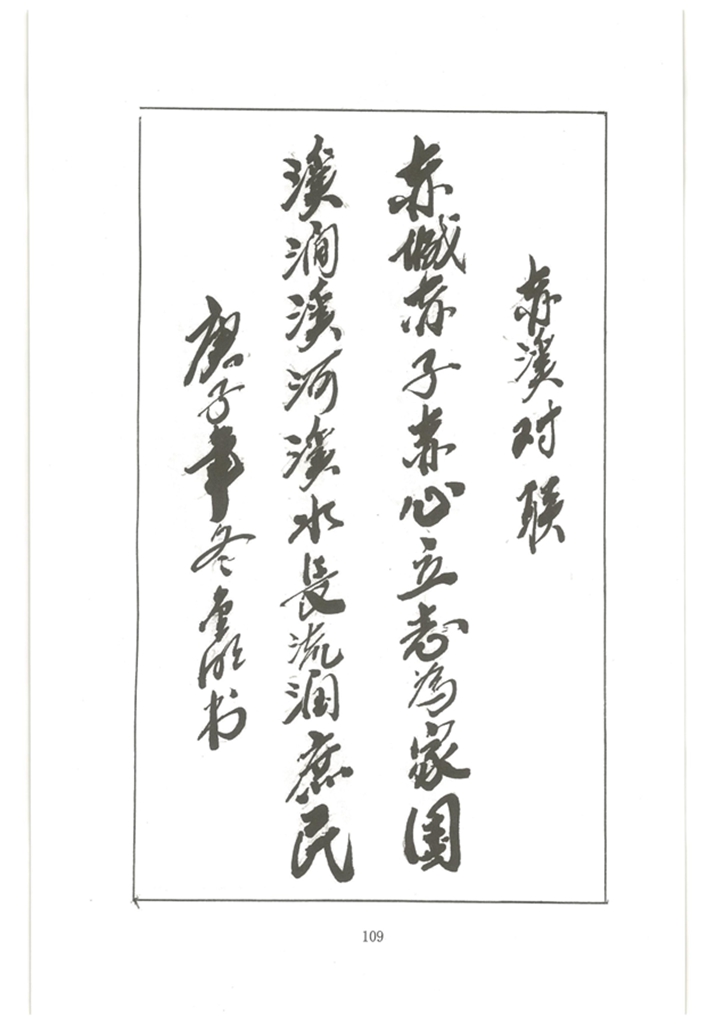 赤溪对联
赤诚赤子赤心立志为家园
溪涧溪河溪水長流润庶民
庚子年冬 书
109